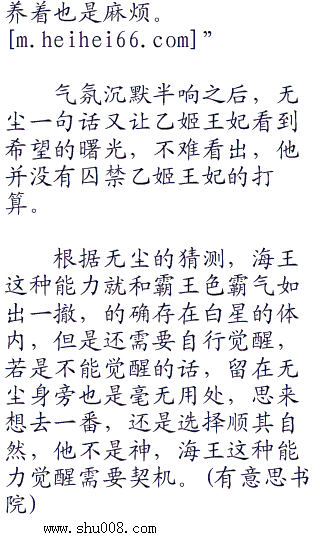 养着也是麻烦。
[m.heihei66.com]”
气氛沉默半响之后，无
尘一句话又让乙姬王妃看到
希望的曙光，不难看出，他
并没有囚禁乙姬王妃的打
算。
根据无尘的猜测，海王
这种能力就和霸王色霸气如
出一撤，的确存在白星的体
内，但是还需要自行觉醒，
若是不能觉醒的话，留在无
尘身旁也是毫无用处，思来
想去一番，还是选择顺其自
然，他不是神，海王这种能
力觉醒需要契机。(有意思书
院)
www.shu008.com